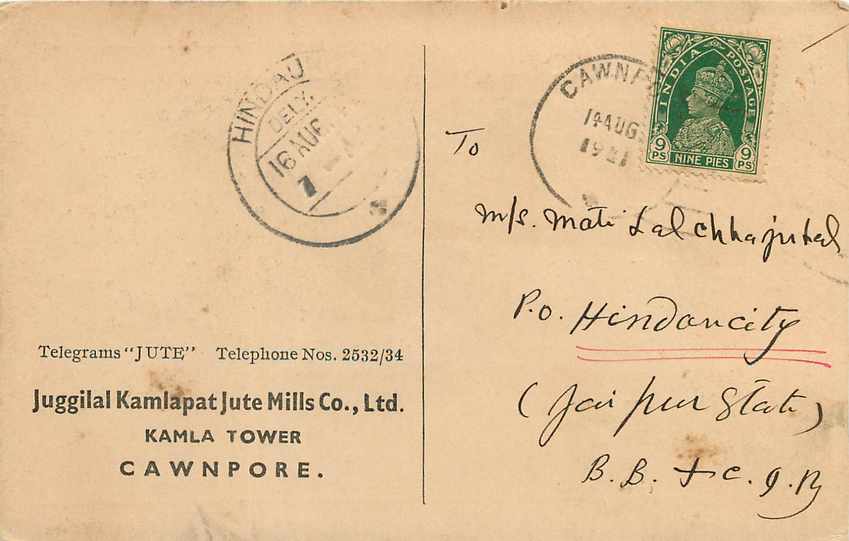 HINDAU
DELY.
16 AUG
7
Telegrams "JUTE" Telephone Nos. 2532/34
Juggilal Kamlapat Jute Mills Co., Ltd.
KAMLA TOWER
CAWNPORE.
CAWNP
14 AUG
INDIA POSTAGE
9 PS NINE PIES 9 PS
To
M/s. Mati Lal Chhajulal
P.O. Hindaucity
(Jaipur State)
B.B. & C.I.Ry